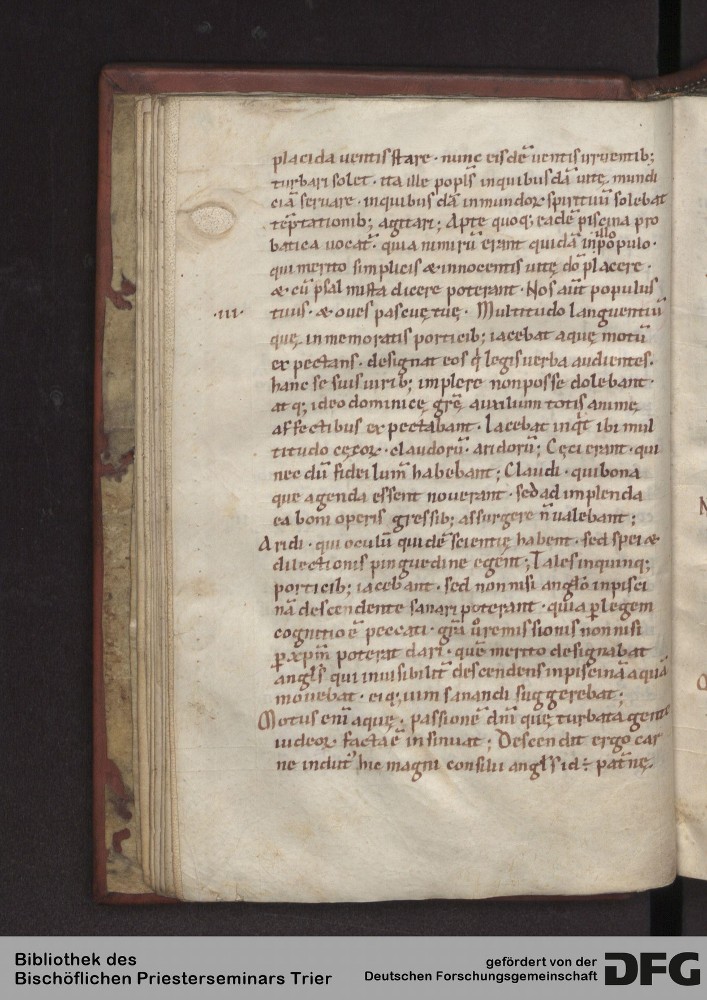 placida uentis stare · nunc eisdē uentis irruentib;
turbari solet · ita ille popl̄s inquibusdā uitę mundi
ciā seruare · inquibusdā inmundoꝝ spirituū solebat
tēptationib; agitari; Apte quoq; eadē piscina pro
batica uocat᷑ · quia nimirū erant quidā in illo ppo populo ·
qui merito simplicis & innocentis uitę dō placere ·
& cū psalmista dicere poterant · Nos aūt populus
·III· tuus · & oues pascuę tuę · Multitudo languentiū
quę in memoratis porticib; iacebat aquę motū
expectans · designat eos q̇ legis uerba audientes ·
hanc se suis uirib; implere non posse dolebant ·
atq; ideo dominicę grē auxilium totis animę
affectibus expectabant · Iacebat inqt̄ ibi mul
titudo cęcoꝝ · claudorū · aridorū; Cęci erant · qui
nec dū fidei lum̄ habebant; Claudi · qui bona
que agenda essent nouerant · sed ad implenda
ea boni operis gressib; assurgere n̄ ualebant;
Aridi · qui oculū quidē scientię habent · sed spei &
dilectionis pinguedine egent; Tales inquinq;
porticib; iacebant · sed non nisi anglo in pisci
nā descendente sanari poterant · quia ꝑ legem
cognitio ē peccati · gr̄a u̇ remissionis non nisi
ꝑ xpm̄ poterat dari · quē merito designabat
angls̄ qui inuisibilit̄ descendens in piscinā aquā
mouebat · eiq; uim sanandi suggerebat;
Motus enī aquę · passionē dn̄i quę turbata gente
iudeoꝝ facta ē insinuat; Descendit ergo car
ne indut᷒ hic magni consilii angl̄s id ÷ pat̄nę
Bibliothek des
Bischöflichen Priesterseminars Trier
gefördert von der
Deutschen Forschungsgemeinschaft
DFG